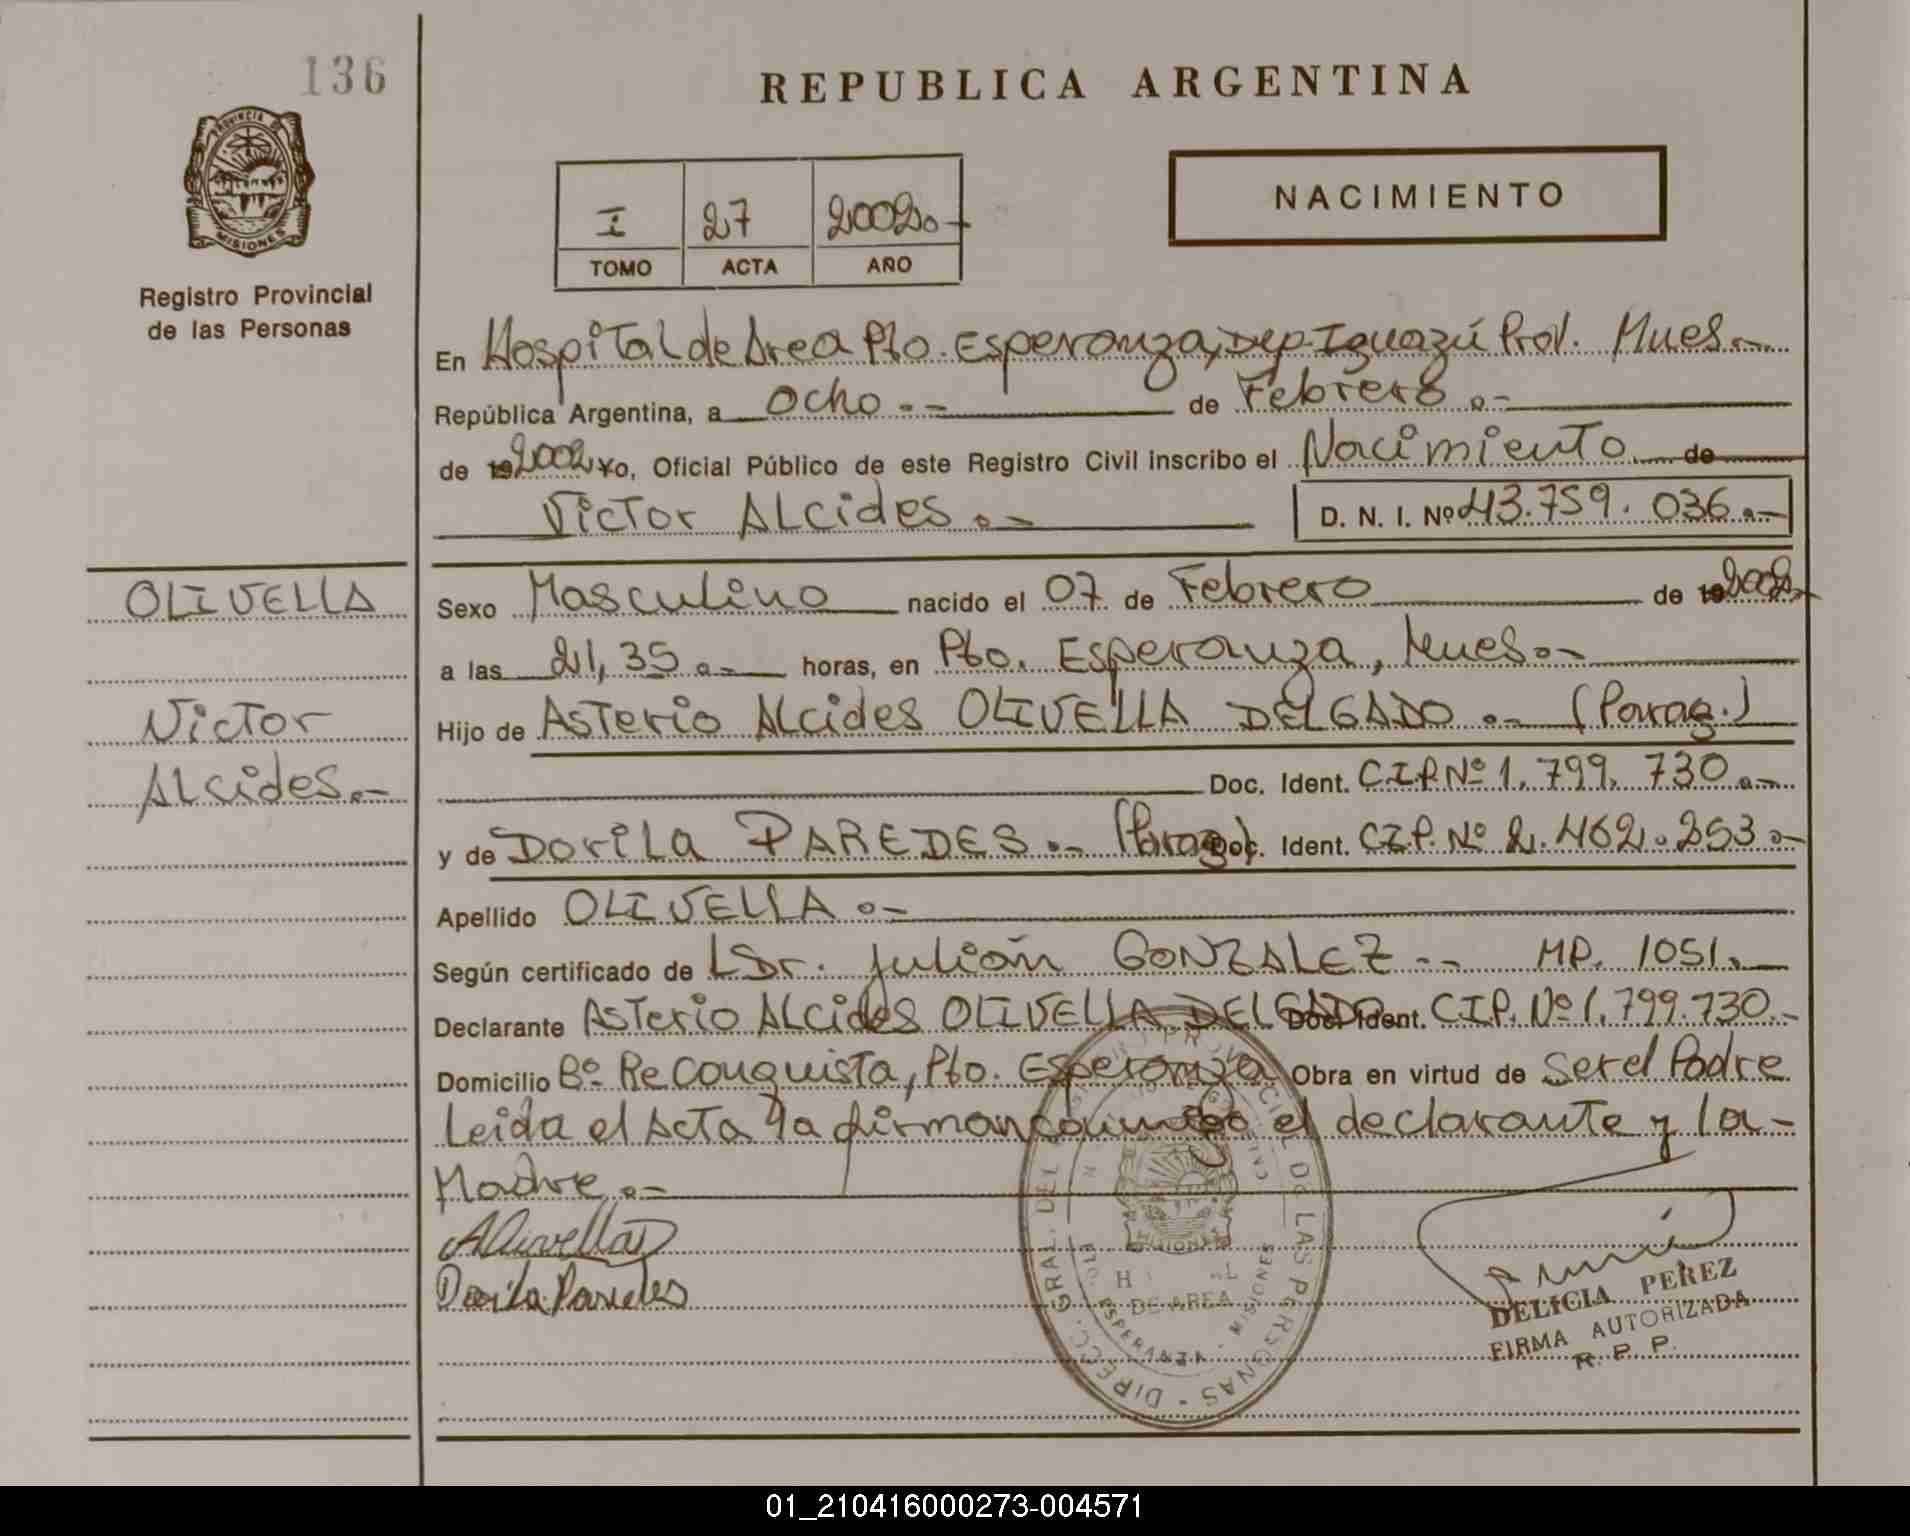 136
REPUBLICA ARGENTINA
PROVINCIA DE
MISIONES
Registro Provincial
de las Personas
I 27 2002.-
TOMO ACTA AÑO
NACIMIENTO
En Hospital de Area Pto. Esperanza, Dep. Iguazú Prov. Mnes.-
República Argentina, a Ocho.- de Febrero.-
de 19 2002 Yo, Oficial Público de este Registro Civil inscribo el Nacimiento de
Victor ALcides.- D. N. I. Nº 43.759.036.-
OLIVELLA
Victor
ALcides.-
Sexo Masculino nacido el 07 de Febrero de 19 2002.-
a las 21,35.- horas, en Pto. Esperanza, Mnes.-
Hijo de Asterio Alcides OLIVELLA DELGADO.- (Parag.)
Doc. Ident. C.I.P. Nº 1.799.730.-
y de DoriLa PAREDES.- (Parag.) Doc. Ident. C.I.P. Nº 2.462.253.-
Apellido OLIVELLA.-
Según certificado de Dr. Julián GONZALEZ.- MP. 1051.-
Declarante Asterio ALcides OLIVELLA DELGADO Doc. Ident. C.I.P. Nº 1.799.730.-
Domicilio Bº ReConquista, Pto. Esperanza Obra en virtud de Ser el Padre
Leida el Acta la firman conmigo el declarante y la-
Madre.-
DoriLa Paredes
DIRECC. GRAL. DEL REGISTRO PROVINCIAL DE LAS PERSONAS
MISIONES
DE AREA
ESPERANZA - MISIONES
DELICIA PEREZ
FIRMA AUTORIZADA
R. P. P.
01_210416000273-004571